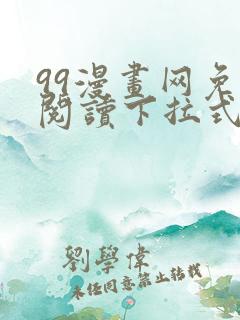 99漫畫网免
閱讀下拉式
劉學偉
未任同意禁止转载